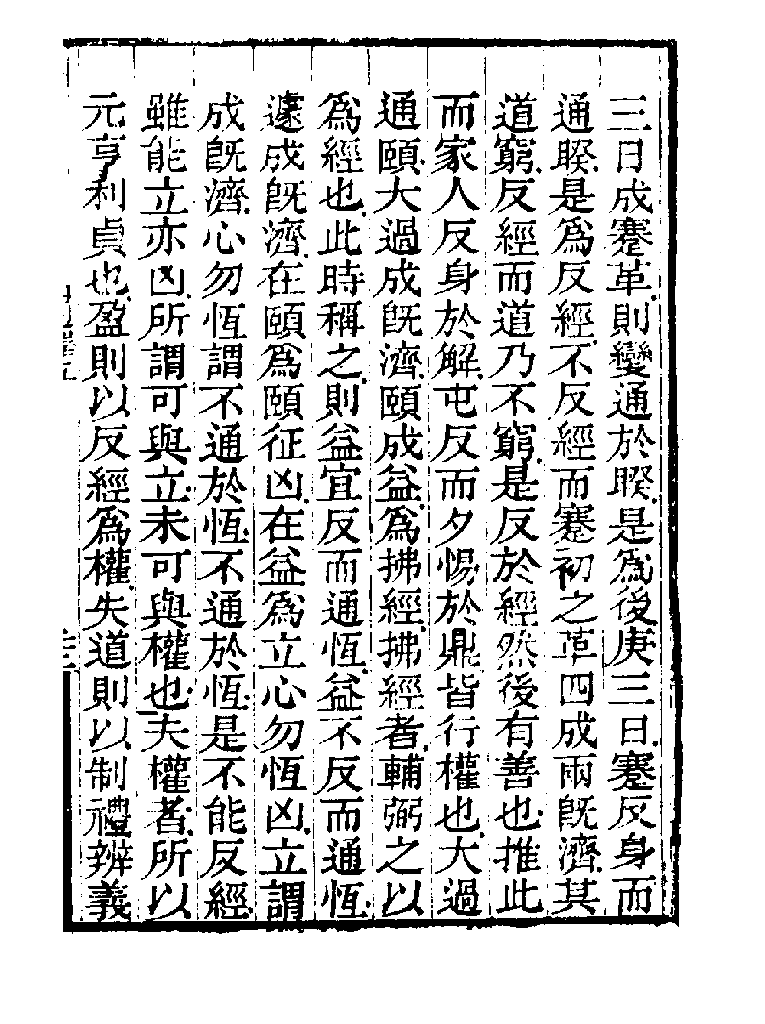 三日成蹇革則變通於睽是爲後庚三日蹇反身而
通睽是爲反經不反經而蹇初之革四成兩旣濟其
道窮反經而道乃不窮是反於經然後有善也推此
而家人反身於解屯反而夕惕於鼎皆行權也大過
通頤大過成旣濟頤成益爲拂經拂經者輔弼之以
爲經也此時稱之則益宜反而通恆益不反而通恆
遽成旣濟在頤爲頤征凶在益爲立心勿恆凶立謂
成旣濟心勿恆謂不通於恆不通於恆是不能反經
雖能立亦凶所謂可與立未可與權也夫權者所以
元亨利貞也盈則以反經爲權失道則以制禮辨義